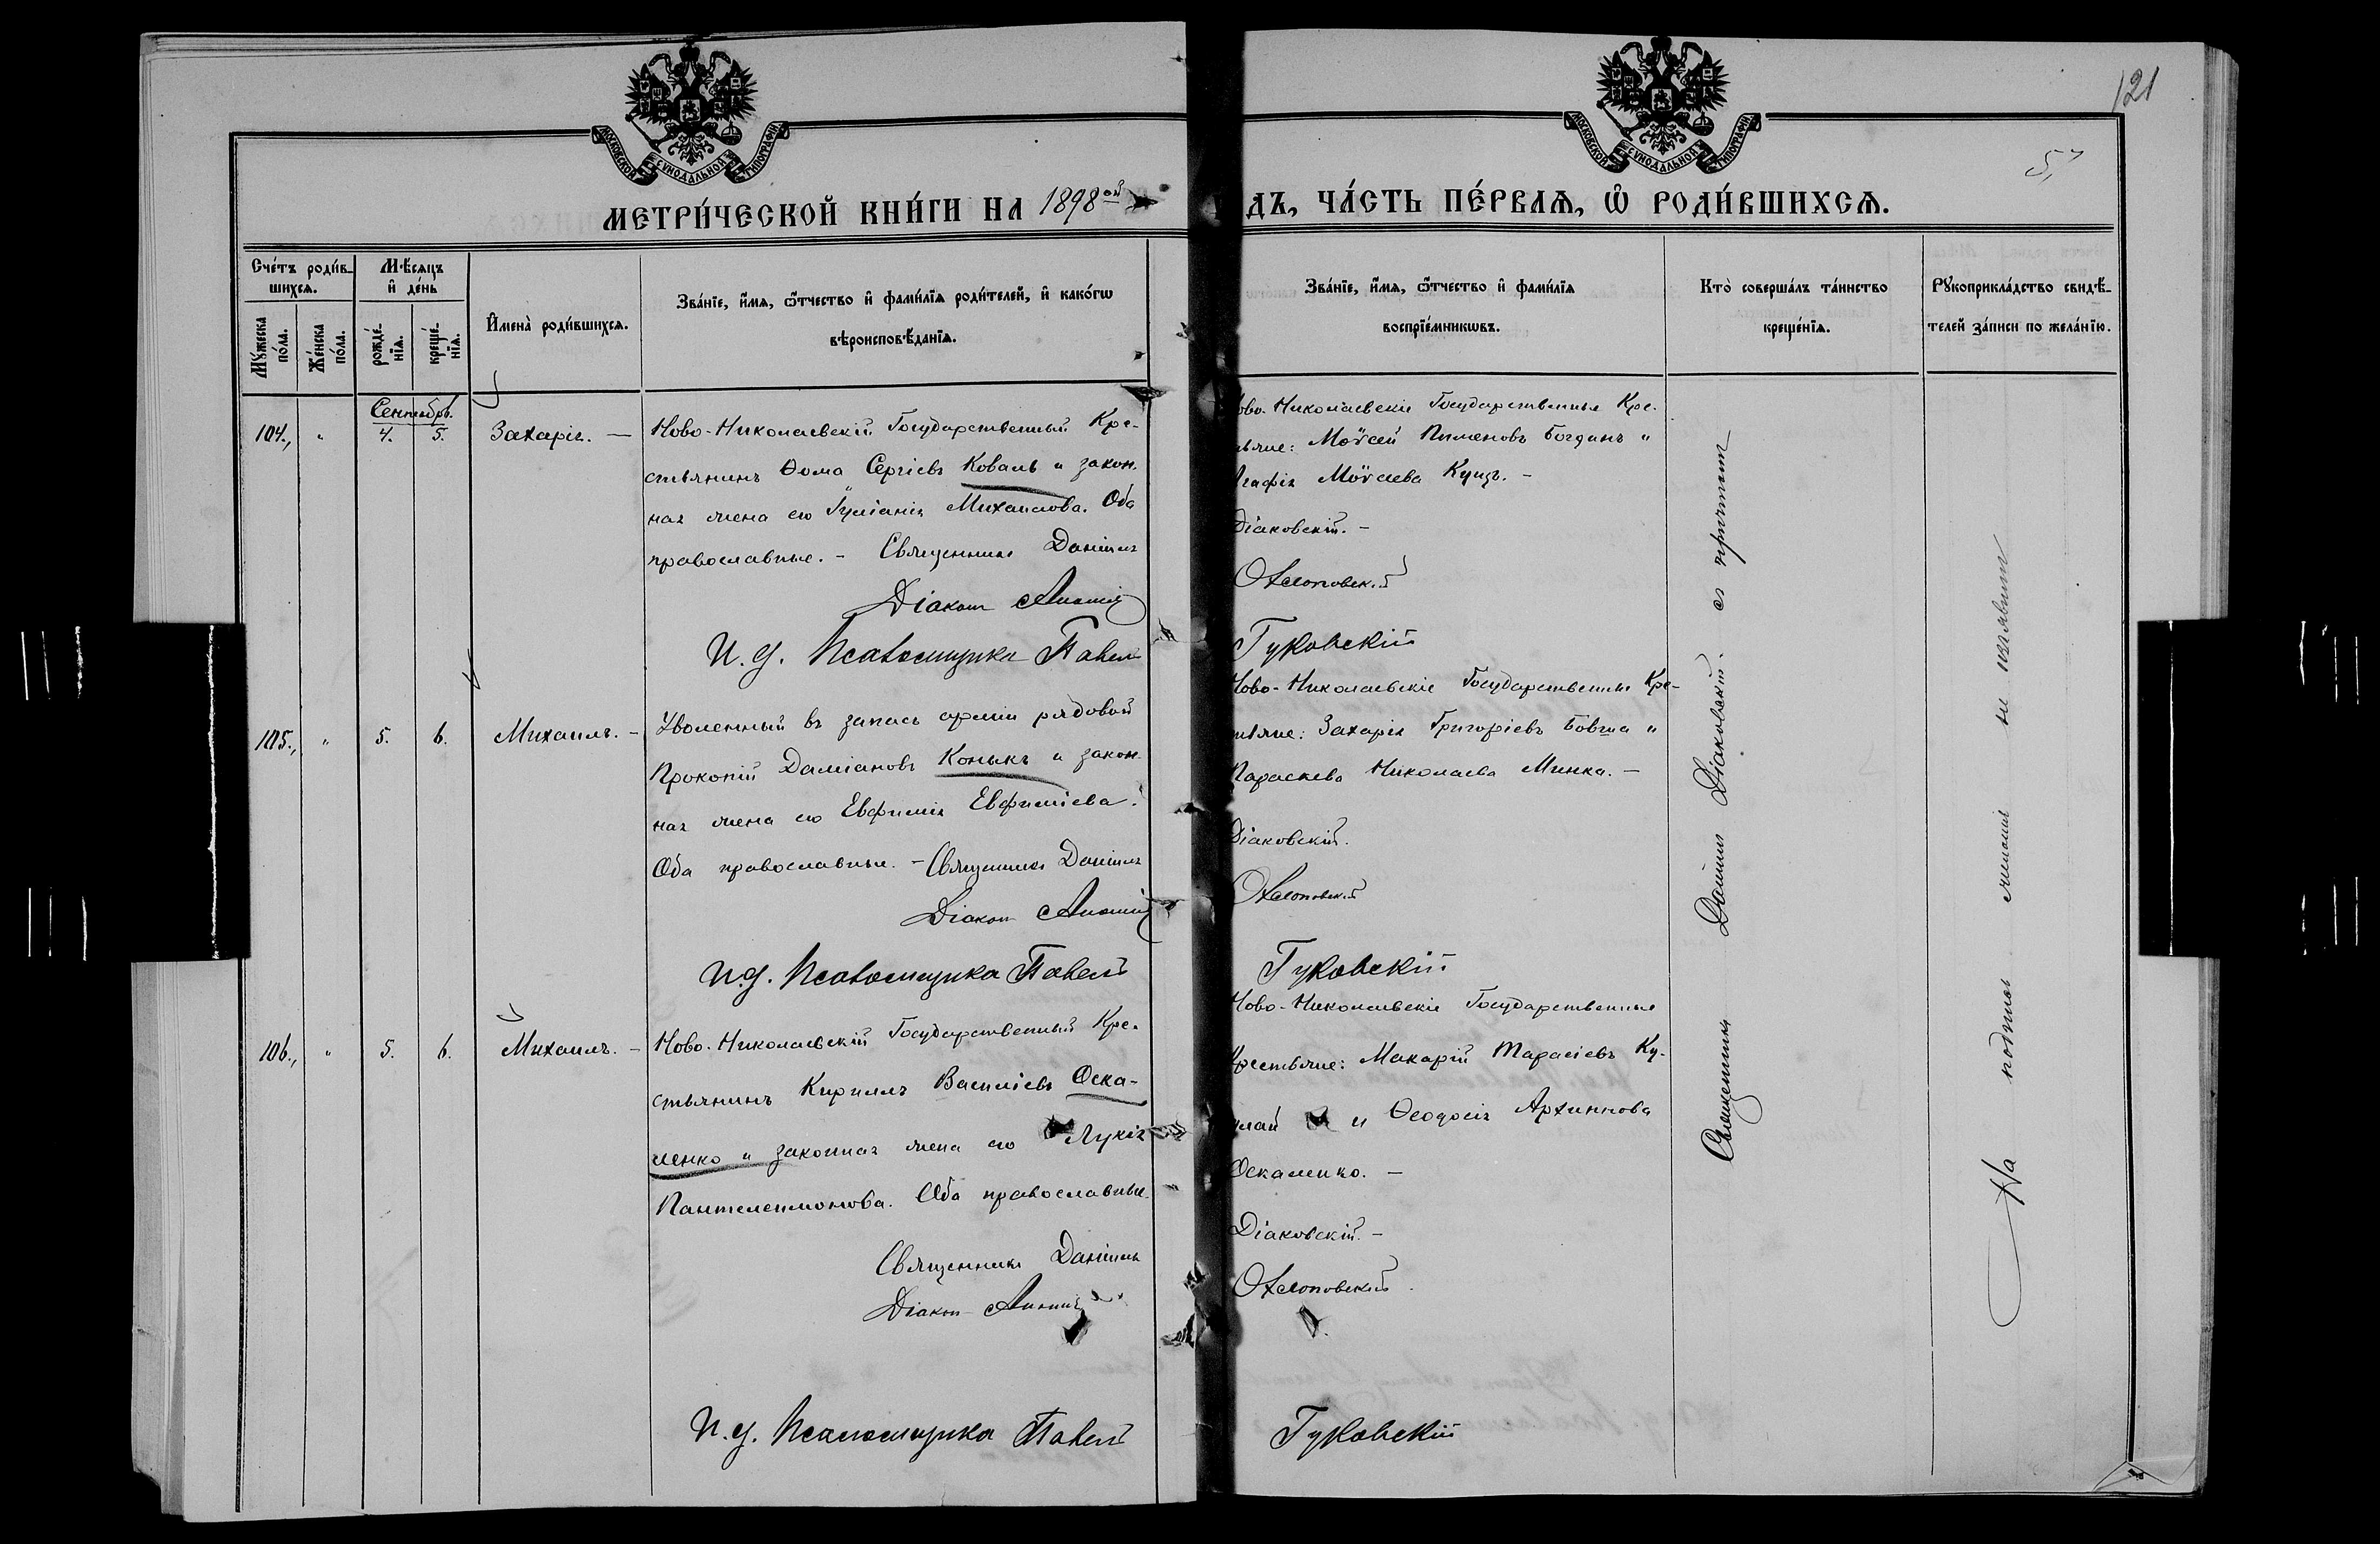 121
5,
МОСКОВСКОЙ СѴНОДАЛЬНОЙ ТИПОГРАФІИ
МОСКОВСКОЙ СѴНОДАЛЬНОЙ ТИПОГРАФІИ
МЕТРИ́ЧЕСКОЙ КНИ́ГИ НА 1898ой
ДЪ, ЧА́СТЬ ПЕ́РВАѦ, Ѡ҆ РОДИ́ВШИХСѦ.
Сче́тъ роди́вшихсѧ.
Му́жеска по́ла.
Же́нска по́ла.
Мѣ́сѧцъ и҆ де́нь
рожде́нїѧ.
креще́нїѧ.
И҆мена̀ роди́вшихсѧ.
Зва́нїе, и҆́мѧ, ѻ҆́тчество и҆ фами́лїѧ роди́телей, и҆ како́гѡ
вѣроисповѣ́данїѧ.
Зва́нїе, и҆́мѧ, ѻ҆́тчество и҆ фами́лїѧ
воспрїе́мникѡвъ.
Кто̀ соверша́лъ та́инство
креще́нїѧ.
Рꙋкоприкла́дство свидѣ́-
телей за́писи по жела́нїю.
Сентябрь.
104., " 4. 5. Захарія. —
Ново-Николаевскій Государственный Кре-
стьянинъ Ѳома Сергіевъ Коваль и закон-
ная жена его Іуліанія Михаилова. Оба
православные. – Священникъ Даніилъ
Діаконъ
И.д. Псаломщика Павелъ
ово-Николаевскіе Государственные Кре-
тьяне: Моѵсей Пименовъ Богданъ и
Агафія Моѵсеева Куцъ. –
Діаковскій. –
Гуковскій
105., " 5. 6. Михаилъ. –
Уволенный въ запасъ арміи рядовой
Прокопій Даміановъ Коныкъ и закон-
ная жена его Евфимія Евфиміева.
Оба православные. – Священникъ Даніилъ
Діаконъ
И.д. Псаломщика Павелъ
Ново-Николаевскіе Государственные Кре-
тьяне: Захарія Григоріевъ Бовша и
Параскева Николаева Минка. –
Діаковскій.
Гуковскій
106., " 5. 6. Михаилъ. –
Ново-Николаевскій Государственный Кре-
стьянинъ Кириллъ Василіевъ Оска-
ленко и законная жена его Лукія
Пантелеимонова. Оба православные.
Священникъ Даніилъ
Діаконъ
И.д. Псаломщика Павелъ
Ново-Николаевскіе Государственные
Крестьяне: Макарій Тарасіевъ Ку-
лай и Ѳеодосія Архиппова
Оскаленко. –
Діаковскій. –
Гуковскій
Священникъ Даніилъ Діаковскій. съ причтомъ
На подпись желанія не изъявили